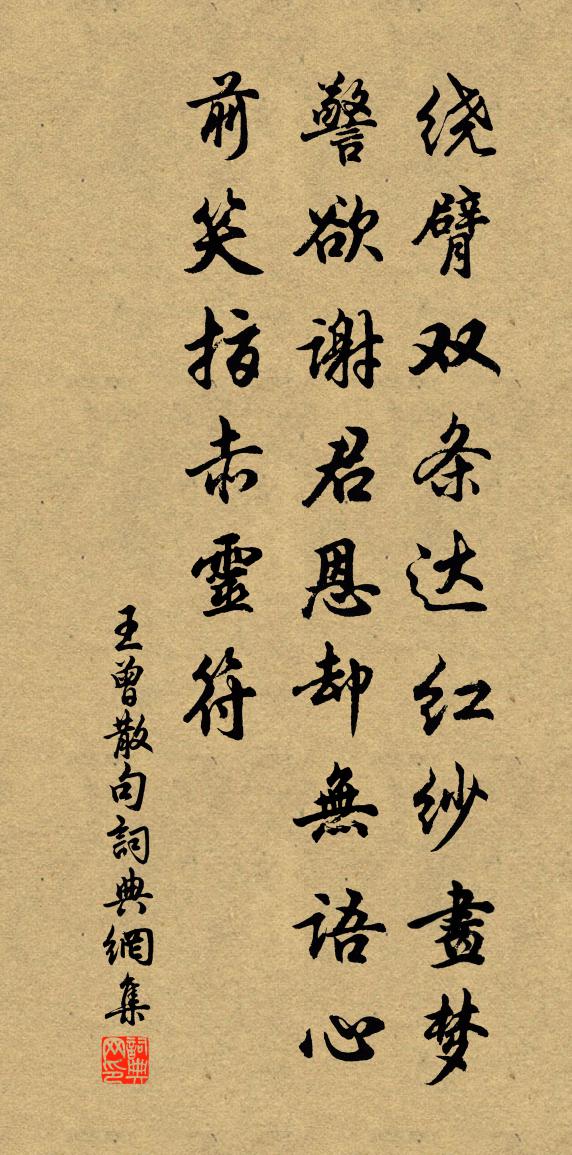 绕臂双条达红纱晝梦
警欲谢君恩却無语心
前笑指赤靈符
王曾散句詞典網集
詞典
网印